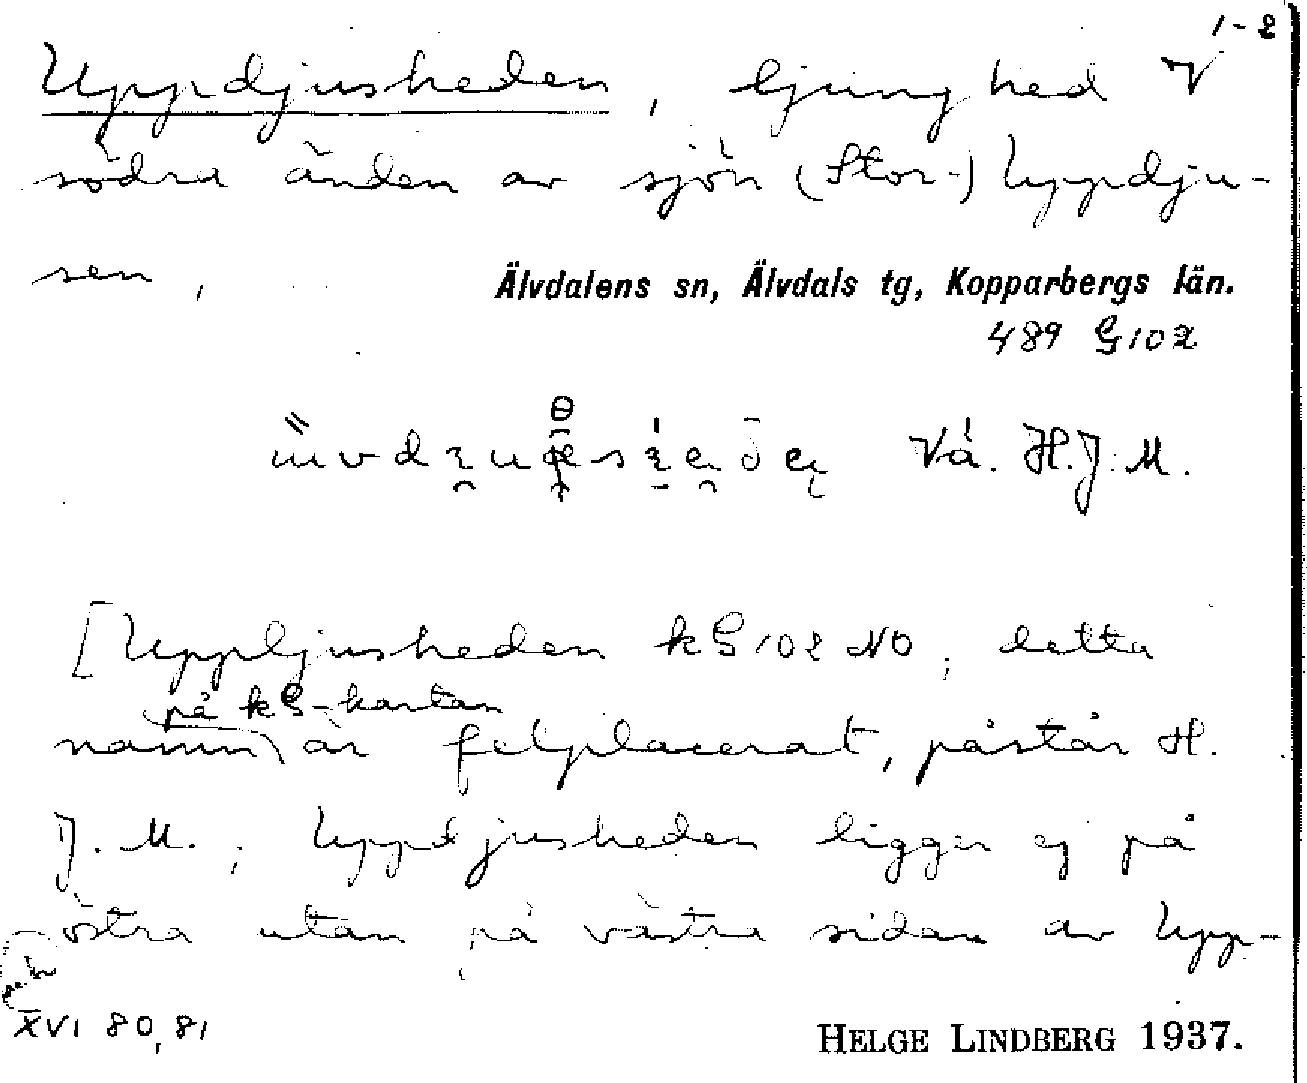 1-2
Uppdjusheden, ljunghed V
södra änden av sjön (Stor-) Uppdju-
sen,
Älvdalens sn, Älvdals tg, Kopparbergs län.
489 G102
Vå. H.J.M.
[Uppljusheden kG102 NO, detta
på kG-kartan
namn är felplacerat, påstår H.
J. M., Uppdjusheden ligger ej på
östra utan på västra sidan av Upp-
XVI 80, 81
HELGE LINDBERG 1937.